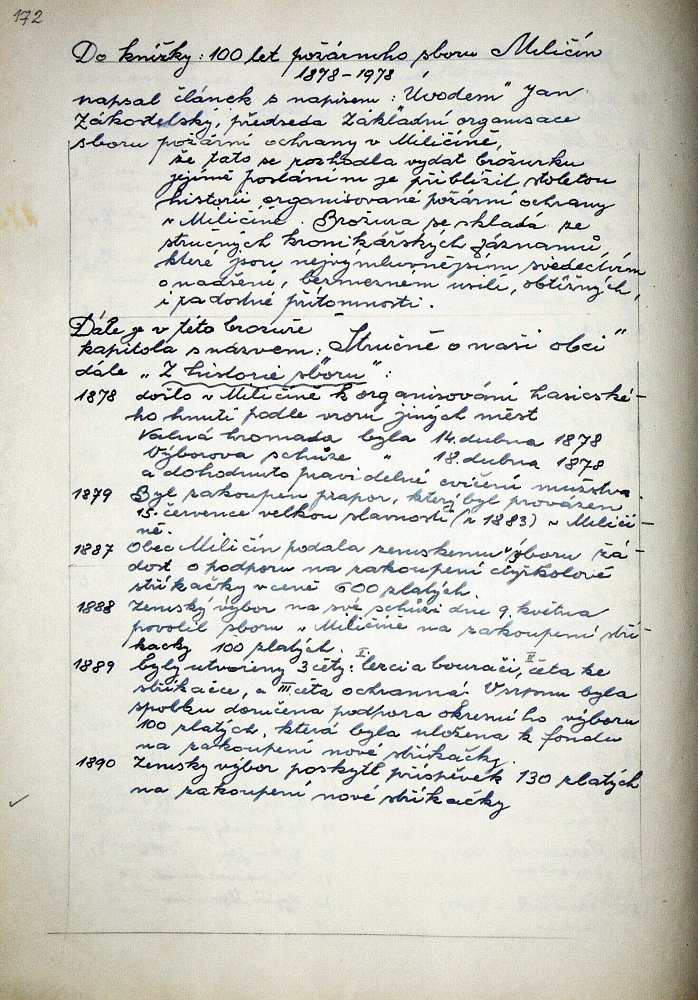 172
Do knížky: 100 let požárního sboru Miličín
1878-1978
napsal článek s nápisem: "Úvodem" Jan
Zákostelský, předseda Základní organisace
sboru požární ochrany v Miličíně,
že tato se rozhodla vydat brožurku
jejímž posláním je přiblížit stoletou
historii organisované požární ochrany
v Miličíně. Brožura se skládá ze
stručných kronikářských záznamů,
které jsou nejvýmluvnějším svědectvím
o nadšení, bezmezném úsilí, obtížných,
i radostné přítomnosti.
Dále je v této brožuře
kapitola s názvem: "Stručně o naší obci"
dále "Z historie sboru":
1878 došlo v Miličíně k organisování hasicské-
ho hnutí podle vzoru jiných měst
Valná hromada byla 14. dubna 1878
Výborova schůze " 18. dubna 1878
a dohodnuto pravidelné cvičení mužstva.
1879 Byl zakoupen prapor, který byl provázen
15. července velkou slavností (r 1883) v Miličí-
ně.
1887 Obec Miličín podala zemskému výboru žá-
dost o podporu na zakoupení čtyřkolové
stříkačky v ceně 600 zlatých.
1888 Zemský výbor na své schůzi dne 9. května
povolil sboru v Miličíně na zakoupení stří-
kačky 100 zlatých.
1889 byly utvořeny 3 čety: I. lezci a bourači, II. četa ke
stříkačce, a III četa ochranná. V srpnu byla
spolku doručena podpora okresního výboru
100 zlatých, která byla uložena k fondu
na zakoupení nové stříkačky.
1890 Zemský výbor poskytl příspěvek 130 zlatých
na zakoupení nové stříkačky